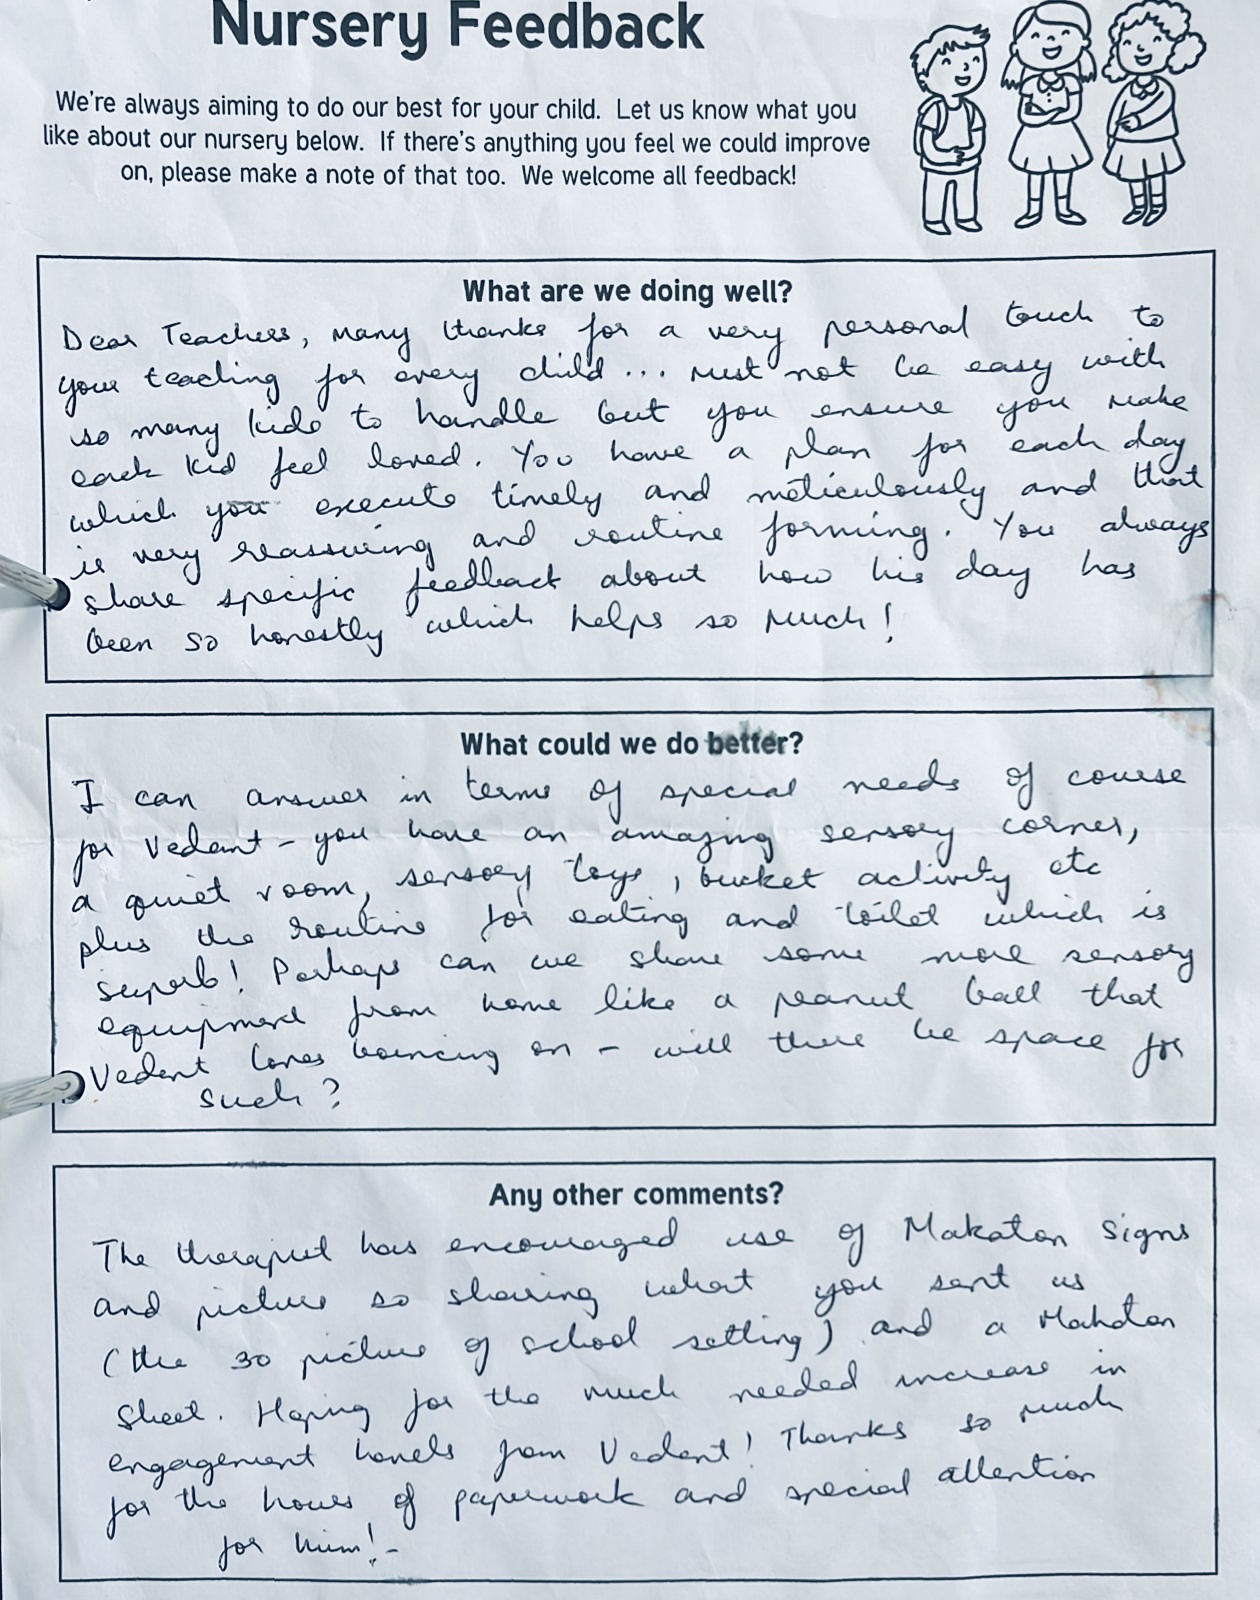 Nursery Feedback
We're always aiming to do our best for your child. Let us know what you
like about our nursery below. If there's anything you feel we could improve
on, please make a note of that too. We welcome all feedback!
What are we doing well?
Dear Teachers, many thanks for a very personal touch to
your teaching for every child... must not be easy with
so many kids to handle but you ensure you make
each kid feel loved. You have a plan for each day
which you execute timely and meticulously and that
is very reassuring and routine forming. You always
share specific feedback about how his day has
been so honestly which helps so much!
What could we do better?
I can answer in terms of special needs of course
for Vedant - you have an amazing sensory corner,
a quiet room, sensory toys, bucket activity etc
plus the routine for eating and toilet which is
superb! Perhaps can we share some more sensory
equipment from home like a peanut ball that
Vedant loves bouncing on - will there be space for
such?
Any other comments?
The therapist has encouraged use of Makaton signs
and picture so sharing what you sent us
(the 30 picture of school setting) and a Makaton
sheet. Hoping for the much needed increase in
engagement levels from Vedant! Thanks so much
for the hours of paperwork and special attention
for him!-